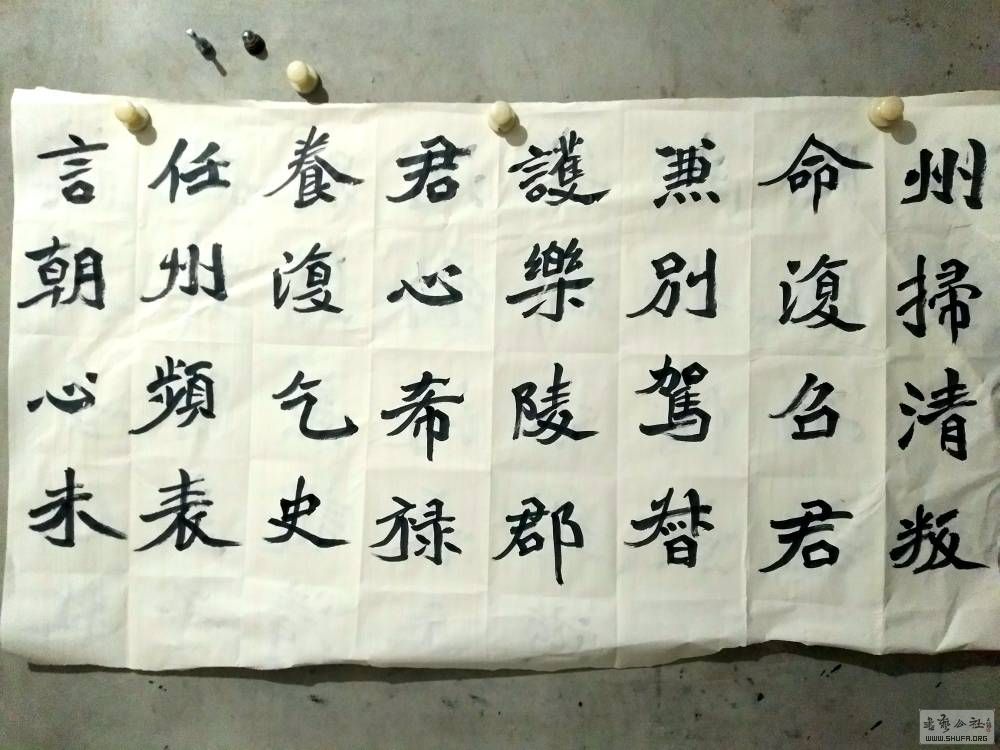 州掃清叛
命復召君
兼別駕督
護樂陵郡
君心希禄
養復乞史
任州頻表
言朝心未
書藝公社
WWW.SHUFA.ORG